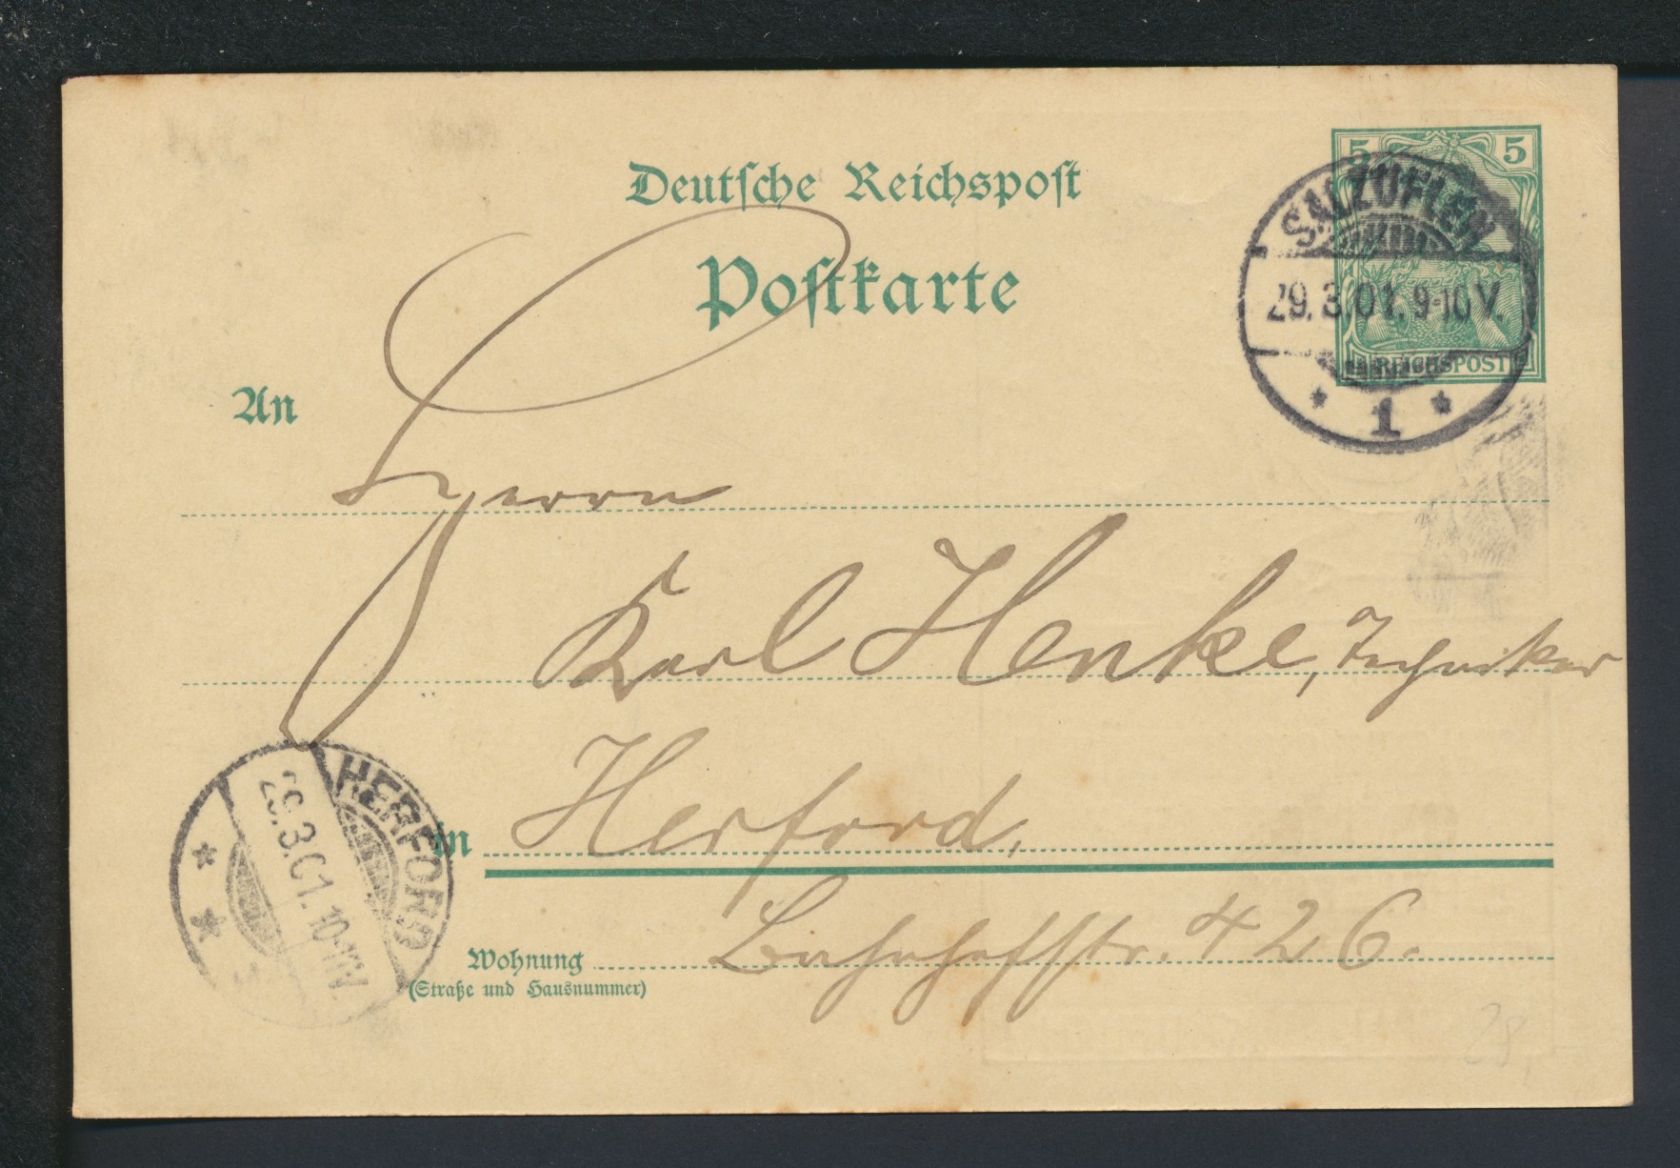 Deutsche Reichspost
Postkarte
5 5
REICHSPOST
SALZUFLEN
29.3.01. 9-10V.
* 1 *
An
Herrn
Karl Henke, Techniker
in Herford.
HERFORD
29.3.01. 10-11V
Wohnung Bahnhofstr. 426.
(Straße und Hausnummer)